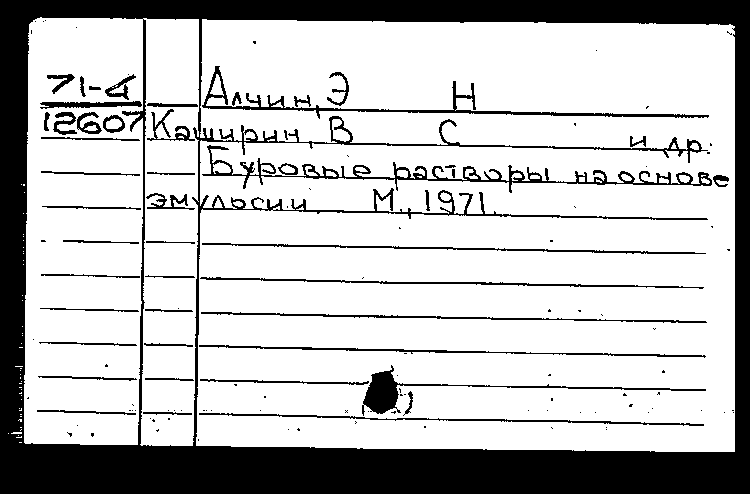 71-4 Алчин, Э Н
12607 Каширин, В С и др.
Буровые растворы на основе
эмульсии М., 1971.